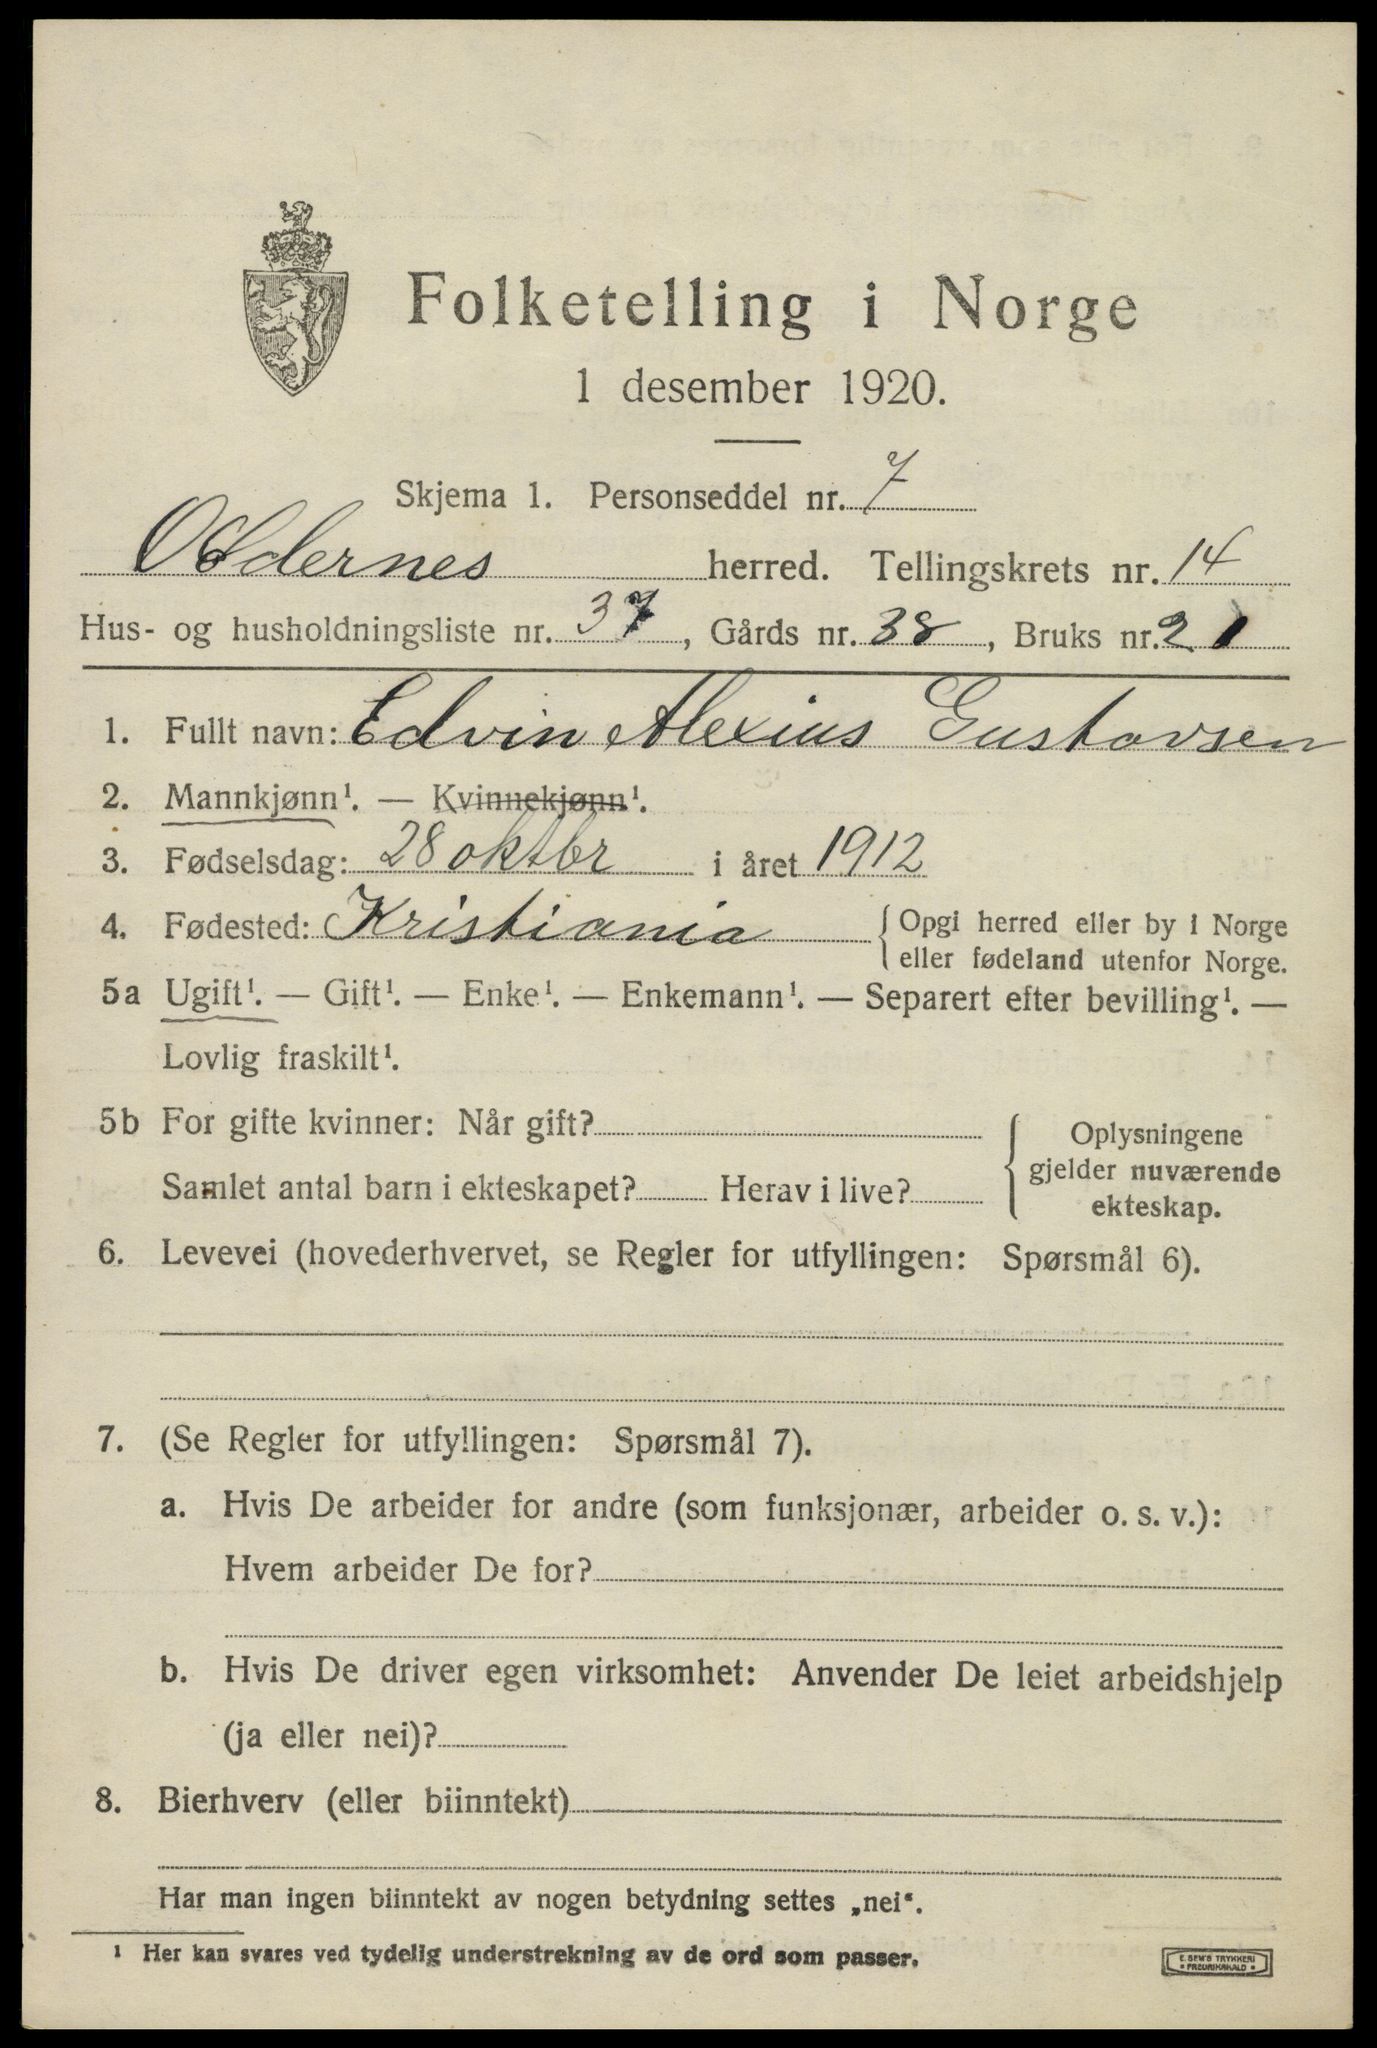 Folketelling i Norge
1 desember 1920.
Skjema 1. Personseddel nr. 7
Oddernes herred. Tellingskrets nr. 14
Hus- og husholdningsliste nr. 37, Gårds nr. 38, Bruks nr. 21
1. Fullt navn: Edvin Alexius Gustavsen
2. Mannkjønn¹. — Kvinnekjønn¹.
3. Fødselsdag: 28 oktbr i året 1912
4. Fødested: Kristiania { Opgi herred eller by i Norge
eller fødeland utenfor Norge.
5a Ugift¹. — Gift¹. — Enke¹. — Enkemann¹. — Separert efter bevilling¹. —
Lovlig fraskilt¹.
5b For gifte kvinner: Når gift?
Samlet antal barn i ekteskapet? Herav i live?
{ Oplysningene
gjelder nuværende
ekteskap.
6. Levevei (hovederhvervet, se Regler for utfyllingen: Spørsmål 6).
7. (Se Regler for utfyllingen: Spørsmål 7).
a. Hvis De arbeider for andre (som funksjonær, arbeider o. s. v.):
Hvem arbeider De for?
b. Hvis De driver egen virksomhet: Anvender De leiet arbeidshjelp
(ja eller nei)?
8. Bierhverv (eller biinntekt)
Har man ingen biinntekt av nogen betydning settes „nei“.
¹ Her kan svares ved tydelig understrekning av de ord som passer.
E. SEM'S TRYKKERI
• FREDRIKSHALD •